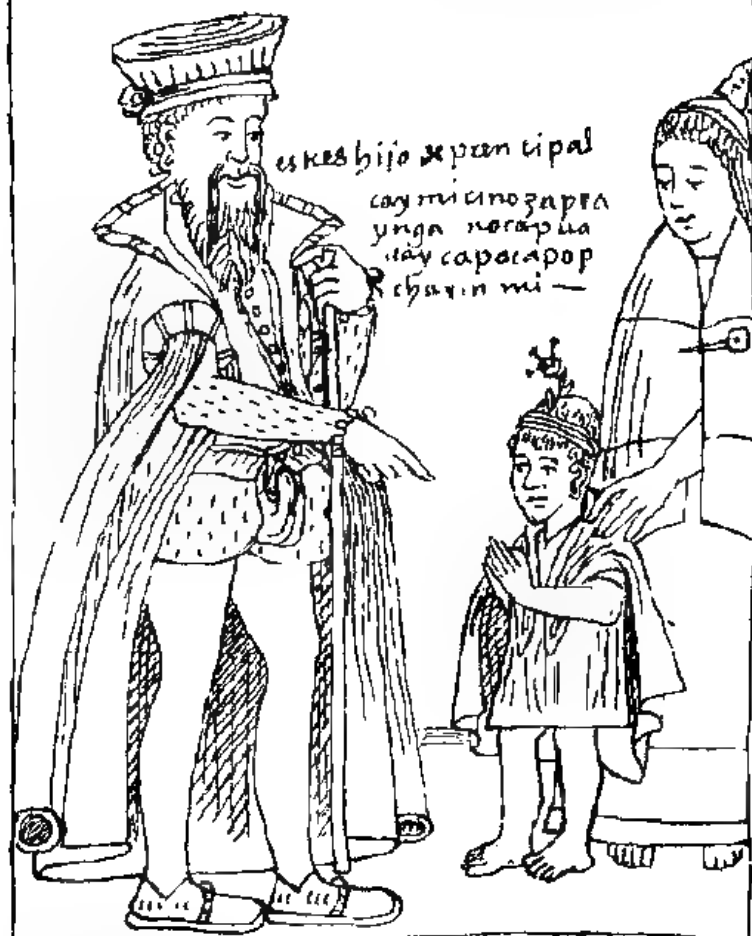 es kes hijo de prencipal
cay mi cino zapra
ynga nocapua
cay capocapop
churin mi —